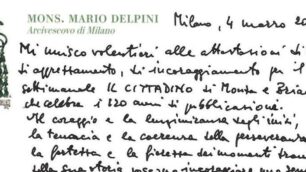 MONS. MARIO DELPINI
Arcivescovo di Milano
Milano, 4 marzo 20
Mi unisco volentieri alle attestazioni di
di apprezzamento, di incoraggiamento per il
settimanale IL CITTADINO di Monza e Brian
che celebra i 120 anni di pubblicazione.
Al coraggio e la lungimiranza degli inizi,
la tenacia e la coerenza della perseveranza
la fortezza e la fierezza dei momenti
della sua storia